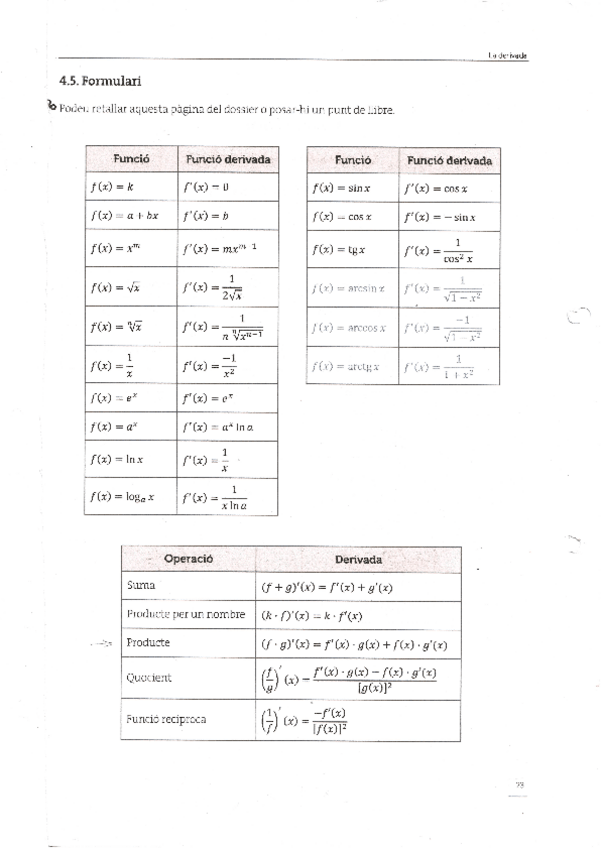 La derivada
4.5. Formulari
Podeu retallar aquesta pàgina del dossier o posar-hi un punt de llibre.
Funció Funció derivada
f(x) = k f'(x) = 0
f(x) = a + bx f'(x) = b
f(x) = xᵐ f'(x) = mxᵐ⁻¹
f(x) = √x f'(x) = 1/(2√x)
f(x) = ⁿ√x f'(x) = 1/(n ⁿ√xⁿ⁻¹)
f(x) = 1/x f'(x) = −1/x²
f(x) = eˣ f'(x) = eˣ
f(x) = aˣ f'(x) = aˣ ln a
f(x) = ln x f'(x) = 1/x
f(x) = logₐ x f'(x) = 1/(x ln a)
Funció Funció derivada
f(x) = sin x f'(x) = cos x
f(x) = cos x f'(x) = − sin x
f(x) = tg x f'(x) = 1/cos² x
f(x) = arcsin x f'(x) = 1/√(1 − x²)
f(x) = arccos x f'(x) = −1/√(1 − x²)
f(x) = arctg x f'(x) = 1/(1 + x²)
Operació Derivada
Suma (f + g)'(x) = f'(x) + g'(x)
Producte per un nombre (k · f)'(x) = k · f'(x)
Producte (f · g)'(x) = f'(x) · g(x) + f(x) · g'(x)
Quocient (f/g)' (x) = (f'(x) · g(x) − f(x) · g'(x))/[g(x)]²
Funció recíproca (1/f)' (x) = −f'(x)/[f(x)]²